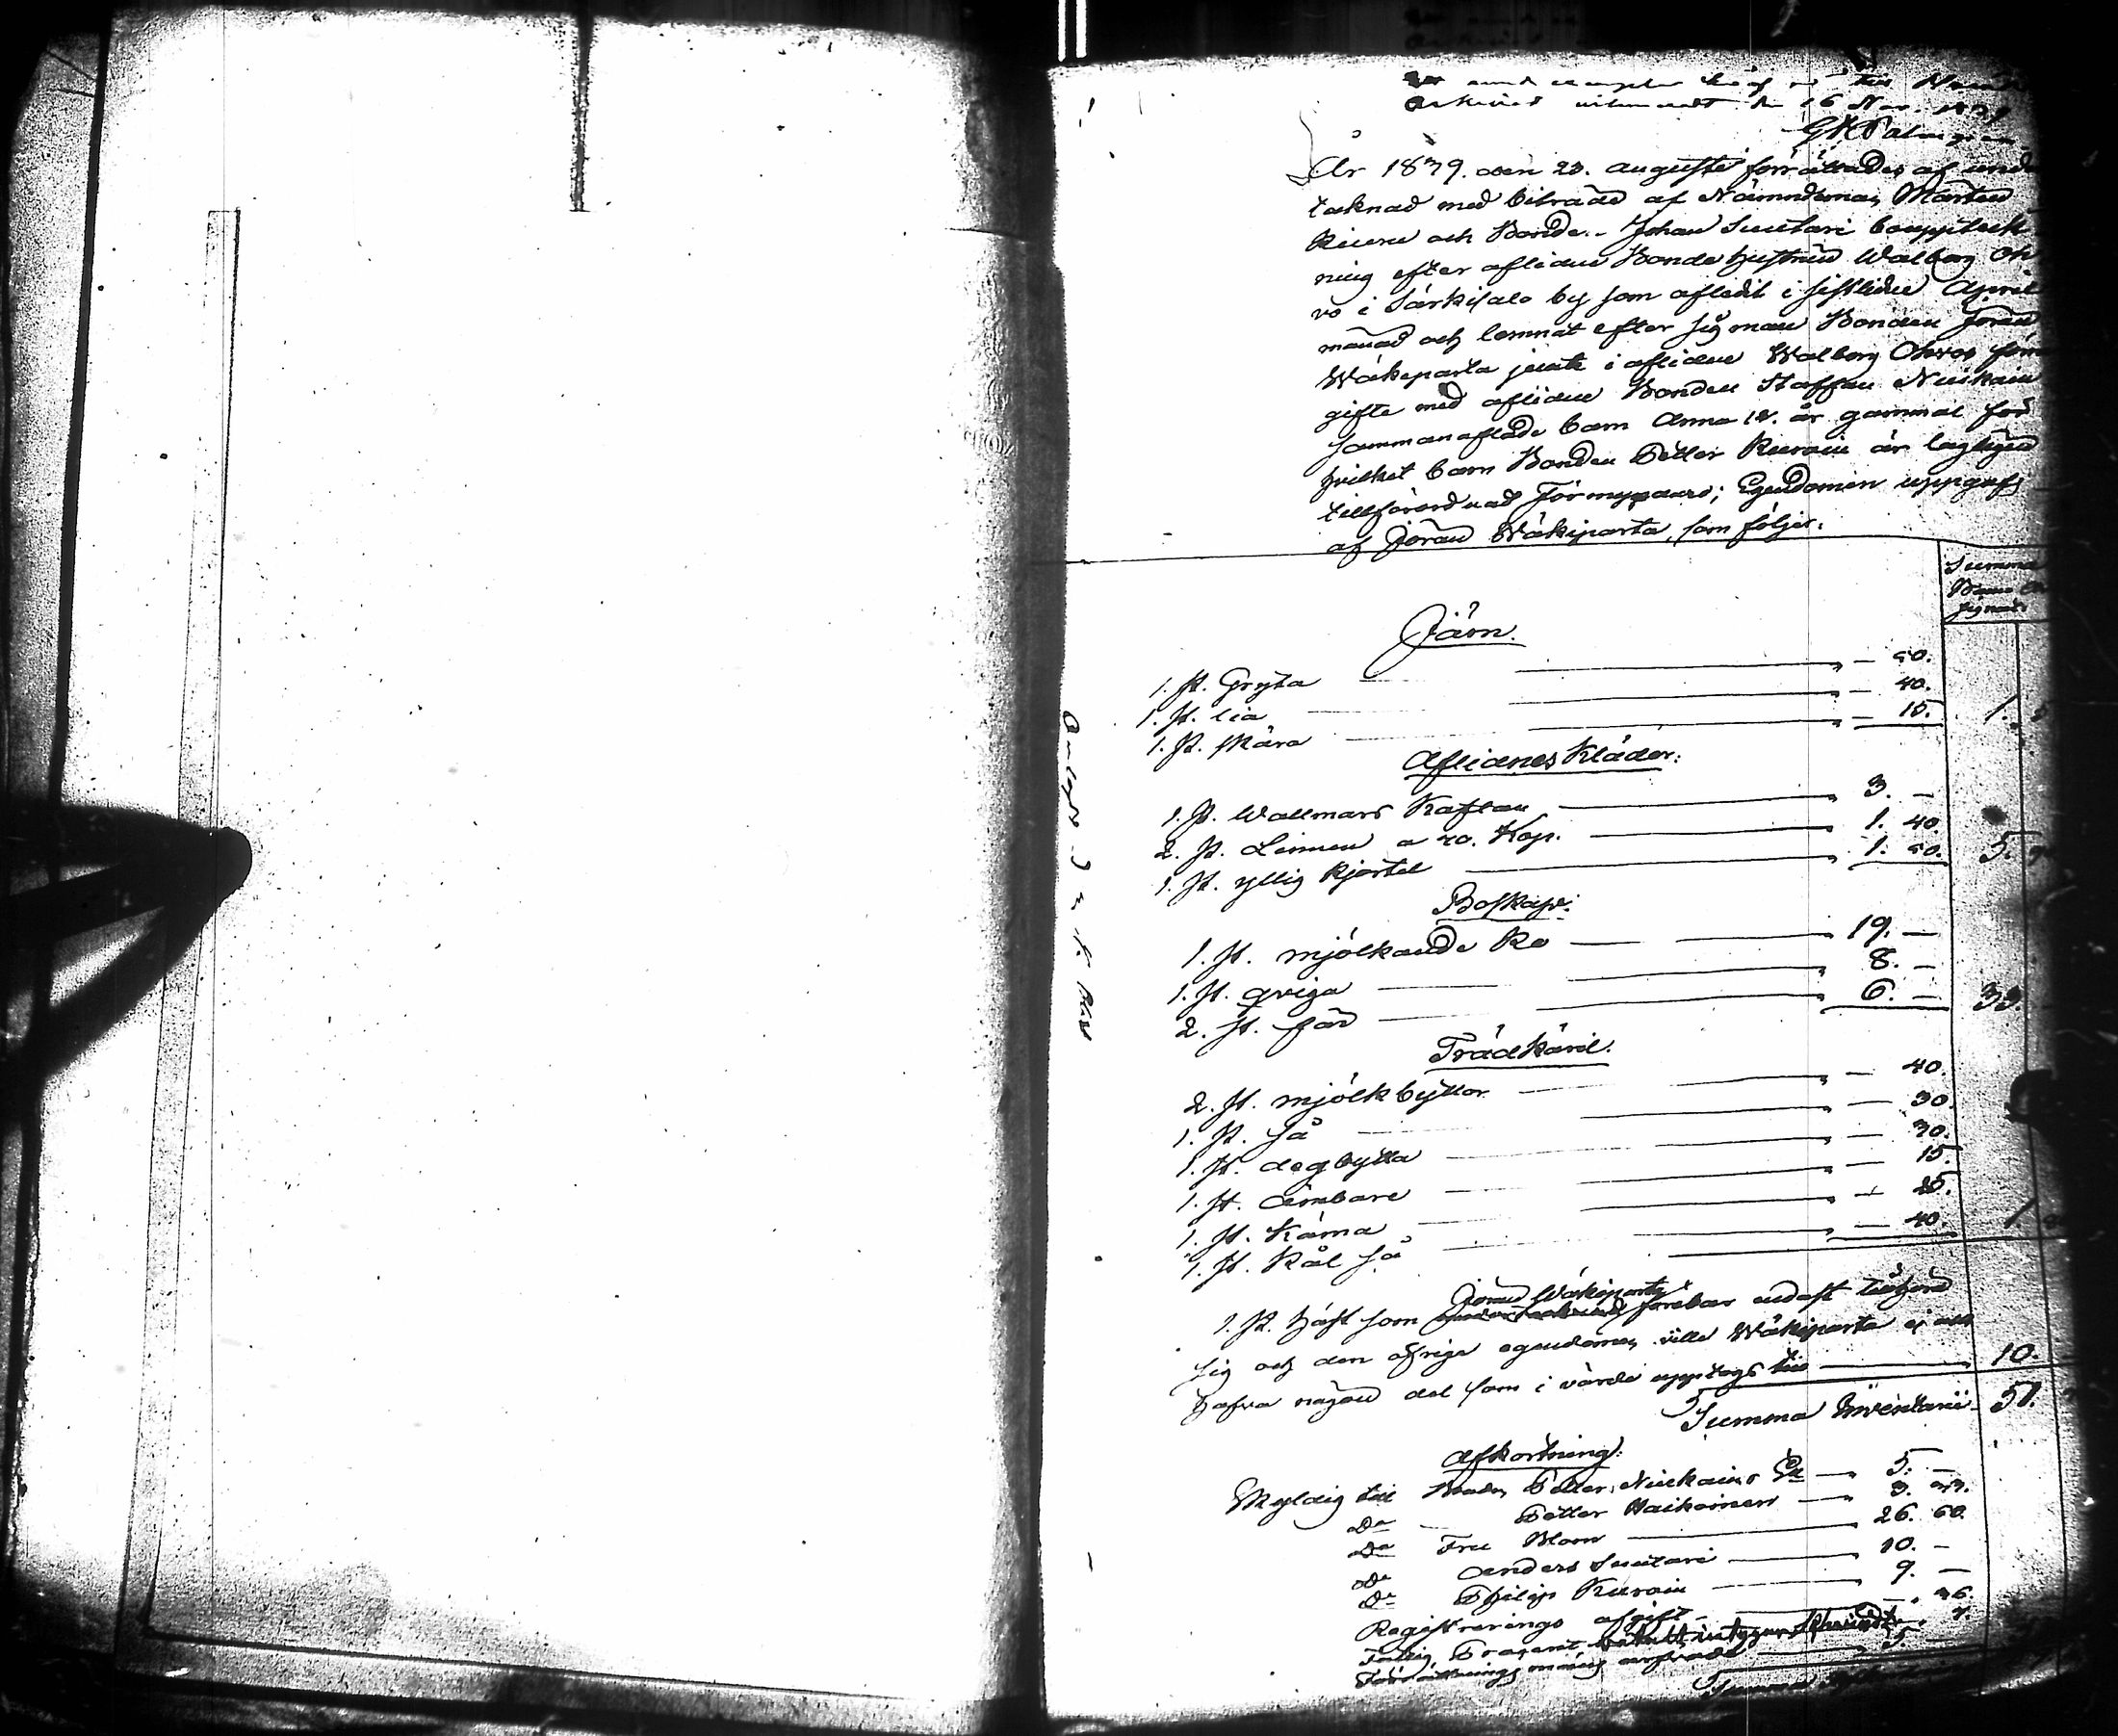 den 16 Nov. 1839
År 1839. den 23. Augusti förrättades af unde
tæknad med biträde af Nämndeman Mårten
och Bonde. Johan Suutari bouppteck
ning efter aflidne Bonde hustrun Walborg Ohv
vo i Särkisalo by som afledit i sistlidne April
månad och lemnat efter sig man Bonden Jöran
Wäkiparta jemte i aflidne Walborg Ohvos förra
gifte med aflidne Bonden Staffan Niukain
sammanaflade barn Anna 12. år gammal för
hvilket barn Bonden Petter Kurain är lagligen
tillförordnad Förmyndare; Egendomen uppgafs
af Jöran Wäkiparta, som följer.
Summa
Järn.
1. st. Gryta — 50.
1. st. lia — 40.
1. st. skära — 10. 1.
Aflidnes Kläder:
1. st. Wallmars Kaftan — 3. —
2. st. Linnen a 70. Kop. — 1. 40.
1. st. yllig kjortel — 1. 50. 5.
Boskap:
1. st. mjölkande Ko — 19. —
1. st. qviga — 8. —
2. st. får — 6. — 33.
Trädkäril.
2. st. mjölkbyttor — 40.
1. st. så — 30.
1. st. degbytta — 30.
1. st. ämbare — 15.
1. st. Kärna — 25.
1. st. Kål så — 40. 1.
Jöran Wäkiparta
1. st. häst som förebar endast tilhöra
sig och den öfriga egendomen, ville Wäkiparta ej
hafva någon del som i värde upptogs till — 10.
Summa Inventarii 51.
Afkortning:
Skyldig till Bonden Petter Niukains — 5. —
Do Petter Haikoinen — 3.
Do Fru Blom — 26. 60.
Do Anders Suutari — 10. —
Do Philip Kurain — 9. —
Registrerings afgift — 36.
Fattig Procent
Förrättnings
Summa